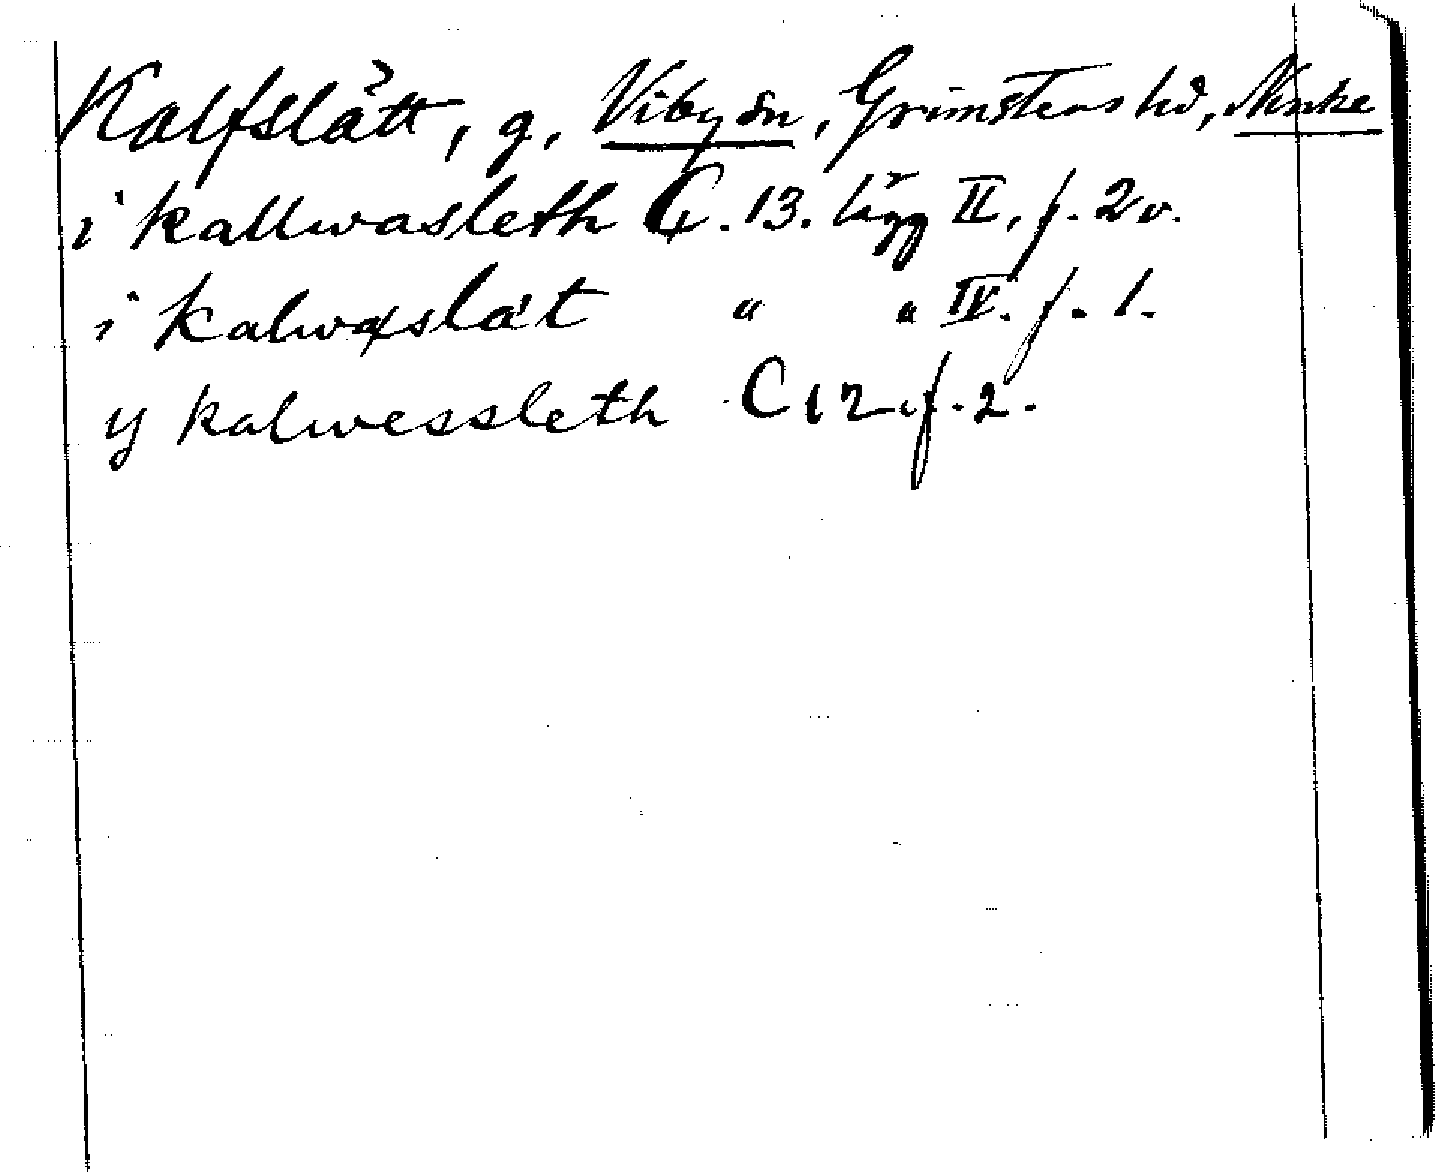 Kalfslätt, g, Viby sn, Grimstens hd, Nerike
i kallwasleth C. 13. lägg II, f. 2v.
i kalwaslät " " IV. f. 1.
y kalwessleth C 12 f. 2.